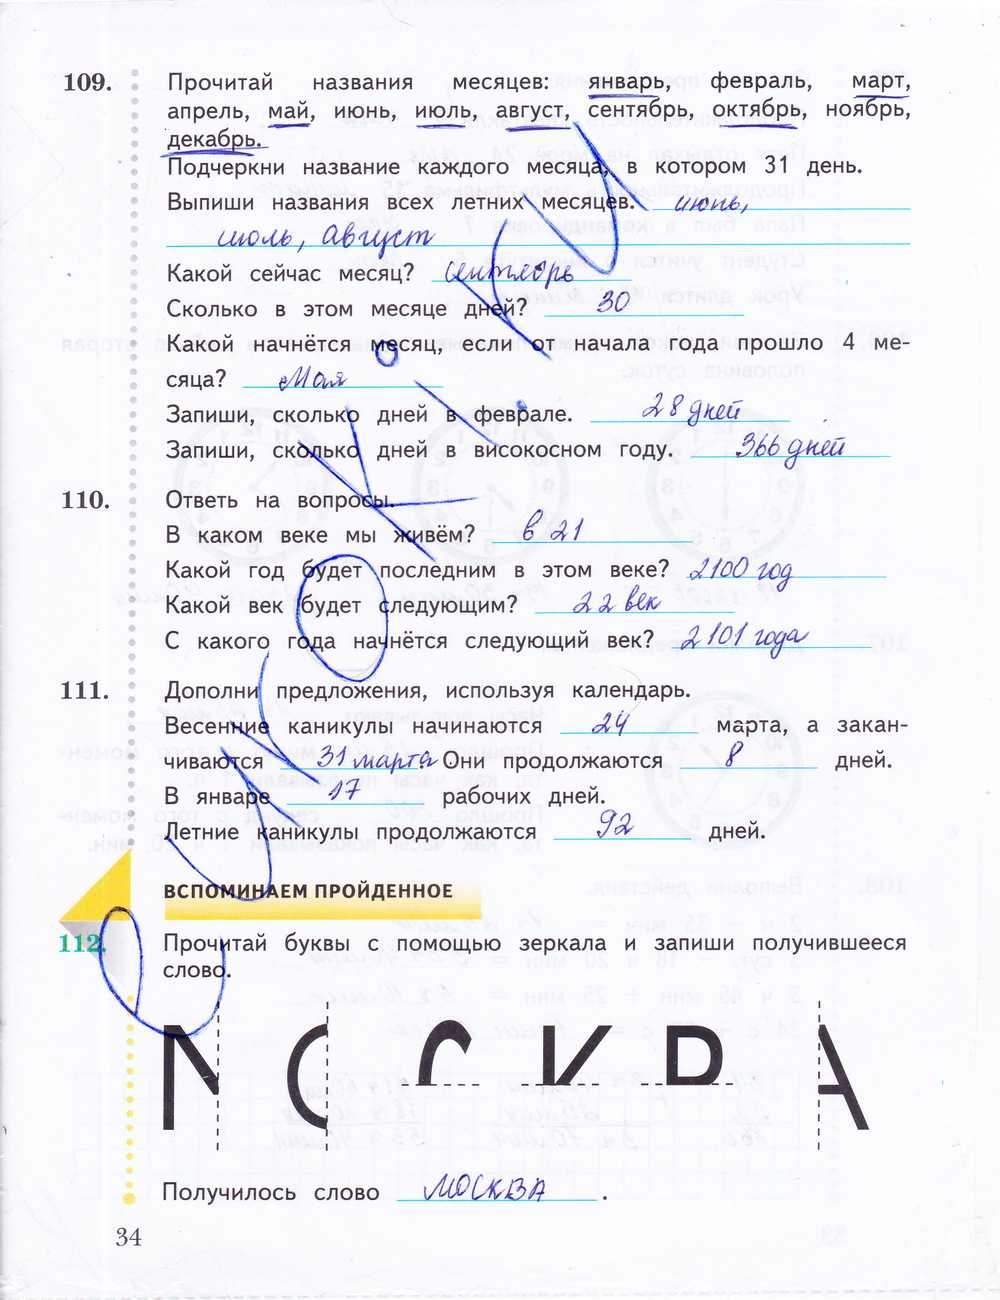 109. Прочитай названия месяцев: январь, февраль, март,
апрель, май, июнь, июль, август, сентябрь, октябрь, ноябрь,
декабрь.
Подчеркни название каждого месяца, в котором 31 день.
Выпиши названия всех летних месяцев. июнь,
июль, август
Какой сейчас месяц? сентябрь
Сколько в этом месяце дней? 30
Какой начнётся месяц, если от начала года прошло 4 ме-
сяца? Мая
Запиши, сколько дней в феврале. 28 дней
Запиши, сколько дней в високосном году. 366 дней
110. Ответь на вопросы.
В каком веке мы живём? в 21
Какой год будет последним в этом веке? 2100 год
Какой век будет следующим? 22 век
С какого года начнётся следующий век? 2101 года
111. Дополни предложения, используя календарь.
Весенние каникулы начинаются 24 марта, а закан-
чиваются 31 марта Они продолжаются 8 дней.
В январе 17 рабочих дней.
Летние каникулы продолжаются 92 дней.
ВСПОМИНАЕМ ПРОЙДЕННОЕ
112. Прочитай буквы с помощью зеркала и запиши получившееся
слово.
МОСКВА
Получилось слово МОСКВА.
34